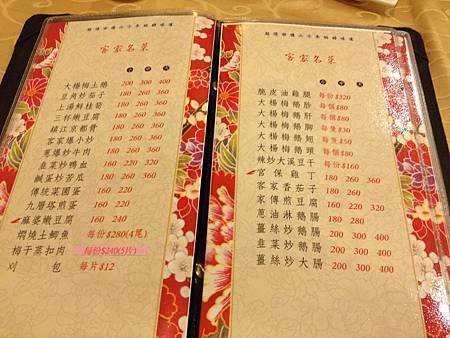 客家名菜
小 中 大
大楊梅土鵝 200 300 400
豆角炒茄子 180 260 360
上湯鮮桂筍 180 260 360
三杯嫩豆腐 180 260 360
鎮江京都骨 180 260 360
客家爆小炒 180 260 360
蔥爆炒牛肉 180 260 360
韭菜炒鴨血 160 220
鹹蛋炒苦瓜 180 260 360
傳統菜圃蛋 160 220
九層塔煎蛋 160 220
麻婆嫩豆腐 160 240
燜燒土鯽魚 每份$280(4尾)
梅子蒸扣肉 每份$240(5片)
刈包 每片$12
客家名菜
小 中 大
脆皮油雞腿 每份$320
大楊梅鵝胗 每個$80
大楊梅鵝肝 每個$80
大楊梅鵝腳 每隻$30
大楊梅鵝翅 每隻$50
大楊梅鵝頭 每個$80
辣炒大溪豆干 每份$160
宮保雞丁 180 260 360
客家香茄子 180 260
家傳煎豆腐 160 220 320
蔥油淋鵝腸 180 280
薑絲炒鵝腸 200 300 400
韭菜炒鵝腸 200 300 400
薑絲炒大腸 200 300 400